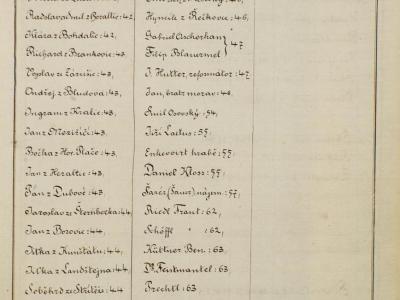 Hynek z Rečkovic : 46,
Klára z Bohdalic : 42,
Gabriel Ascherhan
Richard z Brankovic : 43,
Filip Blauermel
47
Voyslav ze Zárušic : 43,
J. Hutter, reformator : 47
Ondřej z Bludova : 43,
Jan, bratr morav : 48
Ingram z Kralic : 43,
Emil Osovský : 54,
Jan z Meziříčí : 43,
Jiří Laetus : 55
Bočka z Hor. Pláče : 43,
Enkevoirt hrabě : 55
Jan z Heraltic : 43,
Daniel Kloss : 55,
Jan z Dubové : 43,
nájem. : 57,
Jaroslav ze Šternberka : 44,
Riedl Frant : 62,
Jan z Borovic : 44,
Schöffl " : 62,
z Kunštátu : 44,
Küttner Ben. : 63
z Landštejna : 44,
Dr. Feistmantel : 63
Soběhrd ze Střílek : 44
Prechtl : 63